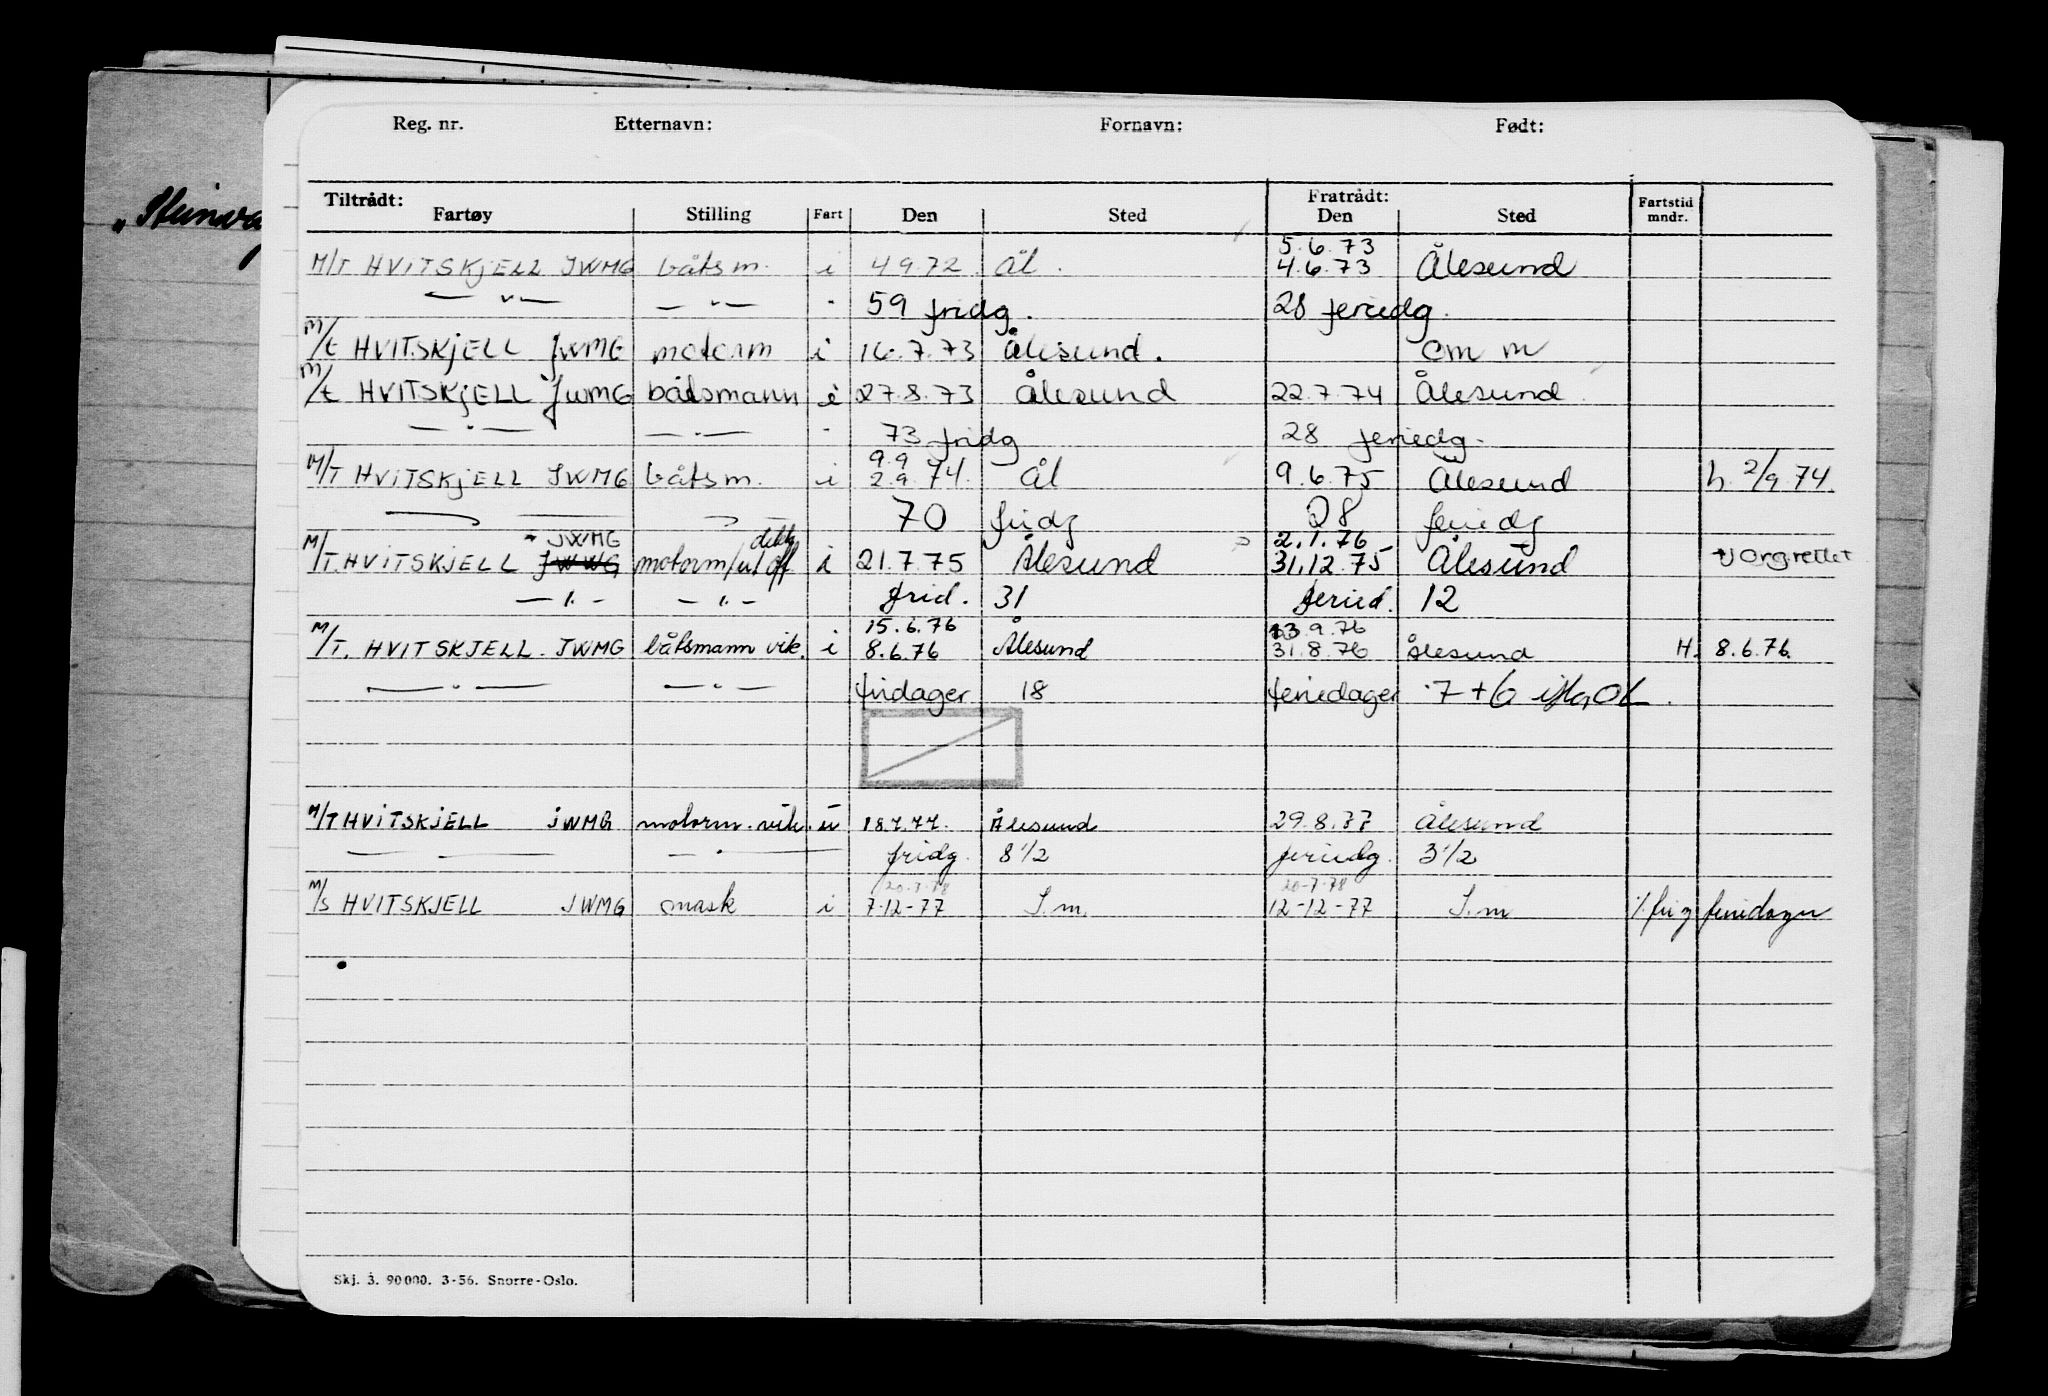 Reg. nr. Etternavn: Fornavn: Født:
Tiltrådt: Fratrådt:
Fartøy Stilling Fart Den Sted Den Sted Fartstid mndr.
"Steinvåg
5.6.73
M/T HVITSKJELL JWMG båtsm. i 4.9.72. Ål. 4.6.73 Ålesund
— " — — " — " 59 fridg. 28 feriedg.
M/t HVITSKJELL JWMG motorm i 16.7.73 Ålesund. om m
M/t HVITSKJELL JWMG båtsmann i 27.8.73 Ålesund 22.7.74 Ålesund
— " — — " — " 73 fridg 28 feriedg.
9.9
M/T HVITSKJELL JWMG båtsm. i 2.9.74. Ål 9.6.75 Ålesund h. 2/9.74.
70 fridg 28 feriedg
JWMG 2.1.76
M/T. HVITSKJELL JWWG motorm/ i 21.7.75 Ålesund 31.12.75 Ålesund
— " — — " — frid. 31 feried. 12
15.6.76 13.9.76
M/T. HVITSKJELL. JWMG båtsmann vik. i 8.6.76 Ålesund 31.8.76 Ålesund H. 8.6.76.
— " — — " — fridager 18 feriedager 7 + 6
M/T HVITSKJELL JWMG motorm. vik. u 18.7.77. Ålesund 29.8.77 Ålesund
— — — " — fridg. 8 1/2 feriedg. 3 1/2
20.7.78 20-7-78
M/S HVITSKJELL JWMG mask i 7-12-77 S.m. 12-12-77 S.m ./. fri og feriedager
Skj. 3. 90 000. 3-56. Snorre-Oslo.